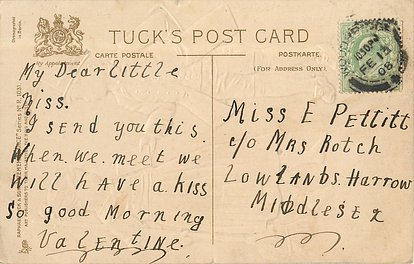 TUCK'S POST CARD
CARTE POSTALE
POSTKARTE.
(FOR ADDRESS ONLY.)
By Appointment
My Dear little
Miss.
I SEnd you this
When. we. meet we
will HAVE A KISS
So good Morning
VALENTINE.
Miss E Pettitt
c/o Mrs Rotch
LOWLANdS. HARROW
MiddlESEX